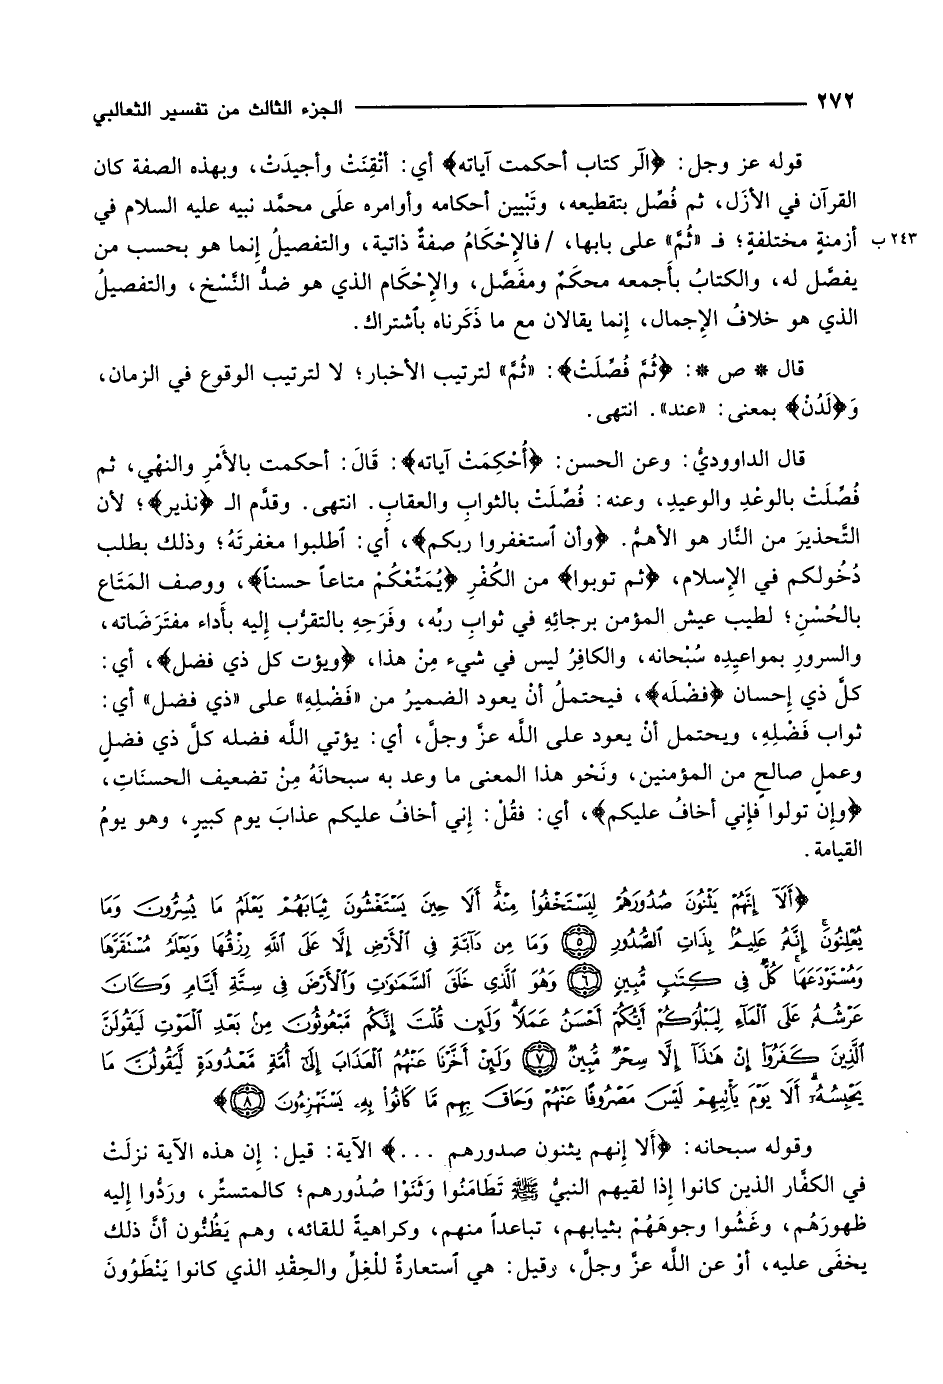 ٢٧٢ الجزء الثالث من تفسير الثعالبي
قوله عز وجل: ﴿الٓر كتاب أحكمت آياته﴾ أي: أتْقِنَتْ وأجيدَتْ، وبهذه الصفة كان
القرآن في الأزَل، ثم فُصِّل بتقطيعه، وتَبْيين أحكامه وأوامره علَى محمَّد نبيه عليه السلام في
٢٤٣ ب أزمنةٍ مختلفةٍ؛ فـ «ثُمَّ» على بابها، / فالإِحْكَامُ صفةٌ ذاتية، والتفصيلُ إِنما هو بحسب من
يفصَّل له، والكتابُ بأجمعه محكَمٌ ومفَصَّل، والإِحْكَام الذي هو ضدُّ النَّسْخ، والتفصيلُ
الذي هو خلافُ الإِجمال، إِنما يقالان مع ما ذَكَرناه بٱشتراك.
قال * ص *: ﴿ثُمَّ فُصِّلَتْ﴾: «ثُم» لترتيب الأخبار؛ لا لترتيب الوقوع في الزمان،
وَ﴿لَدُنْ﴾ بمعنى: «عند». انتهى.
قال الداوديُّ: وعن الحسن: ﴿أُحْكِمَتْ آياته﴾: قَالَ: أحكمت بالأَمْرِ والنهْي، ثم
فُصِّلَتْ بالوعْدِ والوعيدِ، وعنه: فُصِّلَتْ بالثوابِ والعقابِ. انتهى. وقدَّم الـ ﴿نذير﴾؛ لأن
التَّحذيرَ من النَّار هو الأهمُّ. ﴿وأن ٱستغفروا ربكم﴾، أي: ٱطلبوا مغفرتَهُ؛ وذلك بطلب
دُخُولكم في الإِسلام، ﴿ثم توبوا﴾ من الكُفْرِ ﴿يُمَتِّعْكُمْ متاعاً حسناً﴾، ووصف المَتَاع
بالحُسْنِ؛ لطيب عيش المؤمن برجائِهِ في ثوابِ ربِّه، وفَرَحِهِ بالتقرُّب إليه بأَداء مفتَرَضَاته،
والسرورِ بمواعيدِه سُبْحانه، والكافِرُ ليس في شيء مِنْ هذا، ﴿ويؤت كل ذي فضل﴾، أي:
كلَّ ذي إِحسان ﴿فضْلَه﴾، فيحتملُ أنْ يعود الضميرُ من «فَضْلِهِ» على «ذي فضل» أي:
ثواب فَضْلِهِ، ويحتمل أنْ يعود على اللَّه عزَّ وجلَّ، أي: يؤتي اللَّه فضله كلَّ ذي فضلٍ
وعملٍ صالحٍ من المؤمنين، ونَحْو هذا المعنى ما وعد به سبحانَهُ مِنْ تضعيف الحسنَاتِ،
﴿وإِن تولوا فإني أخافُ عليكم﴾، أي: فقُلْ: إِني أخافُ عليكم عذابَ يوم كبيرٍ، وهو يومُ
القيامة.
﴿أَلَآ إِنَّهُمْ يَثْنُونَ صُدُورَهُمْ لِيَسْتَخْفُوا۟ مِنْهُ أَلَا حِينَ يَسْتَغْشُونَ ثِيَابَهُمْ يَعْلَمُ مَا يُسِرُّونَ وَمَا
يُعْلِنُونَ إِنَّهُ عَلِيمٌ بِذَاتِ ٱلصُّدُورِ ۝٥ وَمَا مِن دَآبَّةٍ فِي ٱلْأَرْضِ إِلَّا عَلَى ٱللَّهِ رِزْقُهَا وَيَعْلَمُ مُسْتَقَرَّهَا
وَمُسْتَوْدَعَهَا كُلٌّ فِي كِتَٰبٍ مُّبِينٍ ۝٦ وَهُوَ ٱلَّذِي خَلَقَ ٱلسَّمَٰوَٰتِ وَٱلْأَرْضَ فِي سِتَّةِ أَيَّامٍ وَكَانَ
عَرْشُهُ عَلَى ٱلْمَآءِ لِيَبْلُوَكُمْ أَيُّكُمْ أَحْسَنُ عَمَلًا وَلَئِن قُلْتَ إِنَّكُم مَّبْعُوثُونَ مِنۢ بَعْدِ ٱلْمَوْتِ لَيَقُولَنَّ
ٱلَّذِينَ كَفَرُوٓا۟ إِنْ هَٰذَآ إِلَّا سِحْرٌ مُّبِينٌ ۝٧ وَلَئِنْ أَخَّرْنَا عَنْهُمُ ٱلْعَذَابَ إِلَىٰٓ أُمَّةٍ مَّعْدُودَةٍ لَّيَقُولُنَّ مَا
يَحْبِسُهُ أَلَا يَوْمَ يَأْتِيهِمْ لَيْسَ مَصْرُوفًا عَنْهُمْ وَحَاقَ بِهِم مَّا كَانُوا۟ بِهِۦ يَسْتَهْزِءُونَ ۝٨﴾
وقوله سبحانه: ﴿أَلا إِنهم يثنون صدورهم ...﴾ الآية: قيل: إِن هذه الآية نزلَتْ
في الكفَّار الذين كانوا إِذا لقيهم النبيُّ ﷺ تَطَامَنُوا وَثَنَوْا صُدُورهم؛ كالمتستِّر، وردُّوا إِليه
ظهورَهُم، وغَشُوا وجوهَهُمْ بثيابهم، تباعداً منهم، وكراهيةً للقائه، وهم يَظُنُّون أنَّ ذلك
يخفَى عليه، أوْ عن اللَّه عزَّ وجلَّ، رقيل: هي ٱستعارةٌ للْغِلِّ والحِقْدِ الذي كانوا يَنْطَوُونَ